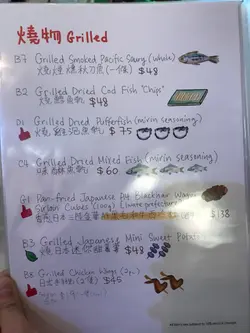 燒物 Grilled
B7 Grilled Smoked Pacific Saury (whole)
燒煙燻秋刀魚(一條) $48
B2 Grilled Dried Cod Fish "Chips"
燒鱈魚乾 $48
D1 Grilled Dried Pufferfish (mirin seasoning)
燒雞泡魚乾 $75
C4 Grilled Dried Mixed Fish (mirin seasoning)
味醂魚乾 $60
G1 Pan-fried Japanese A4 Blackhair Wagyu
Sirloin Cubes (100g)
$138
B3 Grilled Japanese Mini Sweet Potato
燒日本迷你甜蕃薯 $48
B8 Grilled Chicken Wing
$45